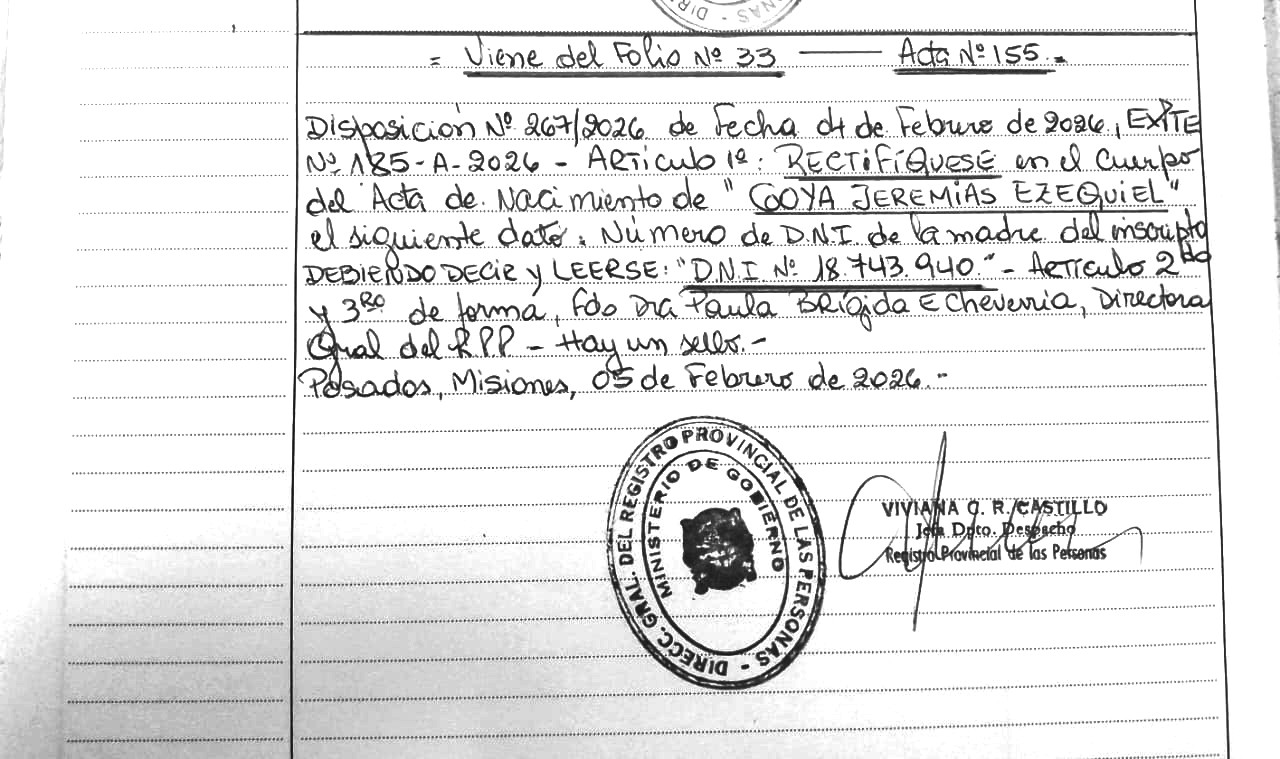 DIR - SAN
= Viene del Folio Nº 33 —— Acta Nº 155.=
Disposición Nº 267/2026 de Fecha 04 de Febrero de 2026, EXPTE
Nº 185-A-2026 - ARTiculo 1º: RECTIFÍQUESE en el Cuerpo
del Acta de Nacimiento de "GOYA JEREMIAS EZEQUIEL"
el siguiente dato: Número de D.N.I. de la madre del inscripto
DEBIENDO DECIR y LEERSE: "D.N.I. Nº 18.743.940." - Artículo 2do
y 3RO de forma, Fdo Dra Paula BRígida Echeverria, Directora
Gral del RPP - Hay un sello.-
Posadas, Misiones, 05 de Febrero de 2026.-
DIRECC. GRAL. DEL REGISTRO PROVINCIAL DE LAS PERSONAS -
MINISTERIO DE GOBIERNO
VIVIANA C. R. CASTILLO
Jefa Dpto. Despacho
Registro Provincial de las Personas